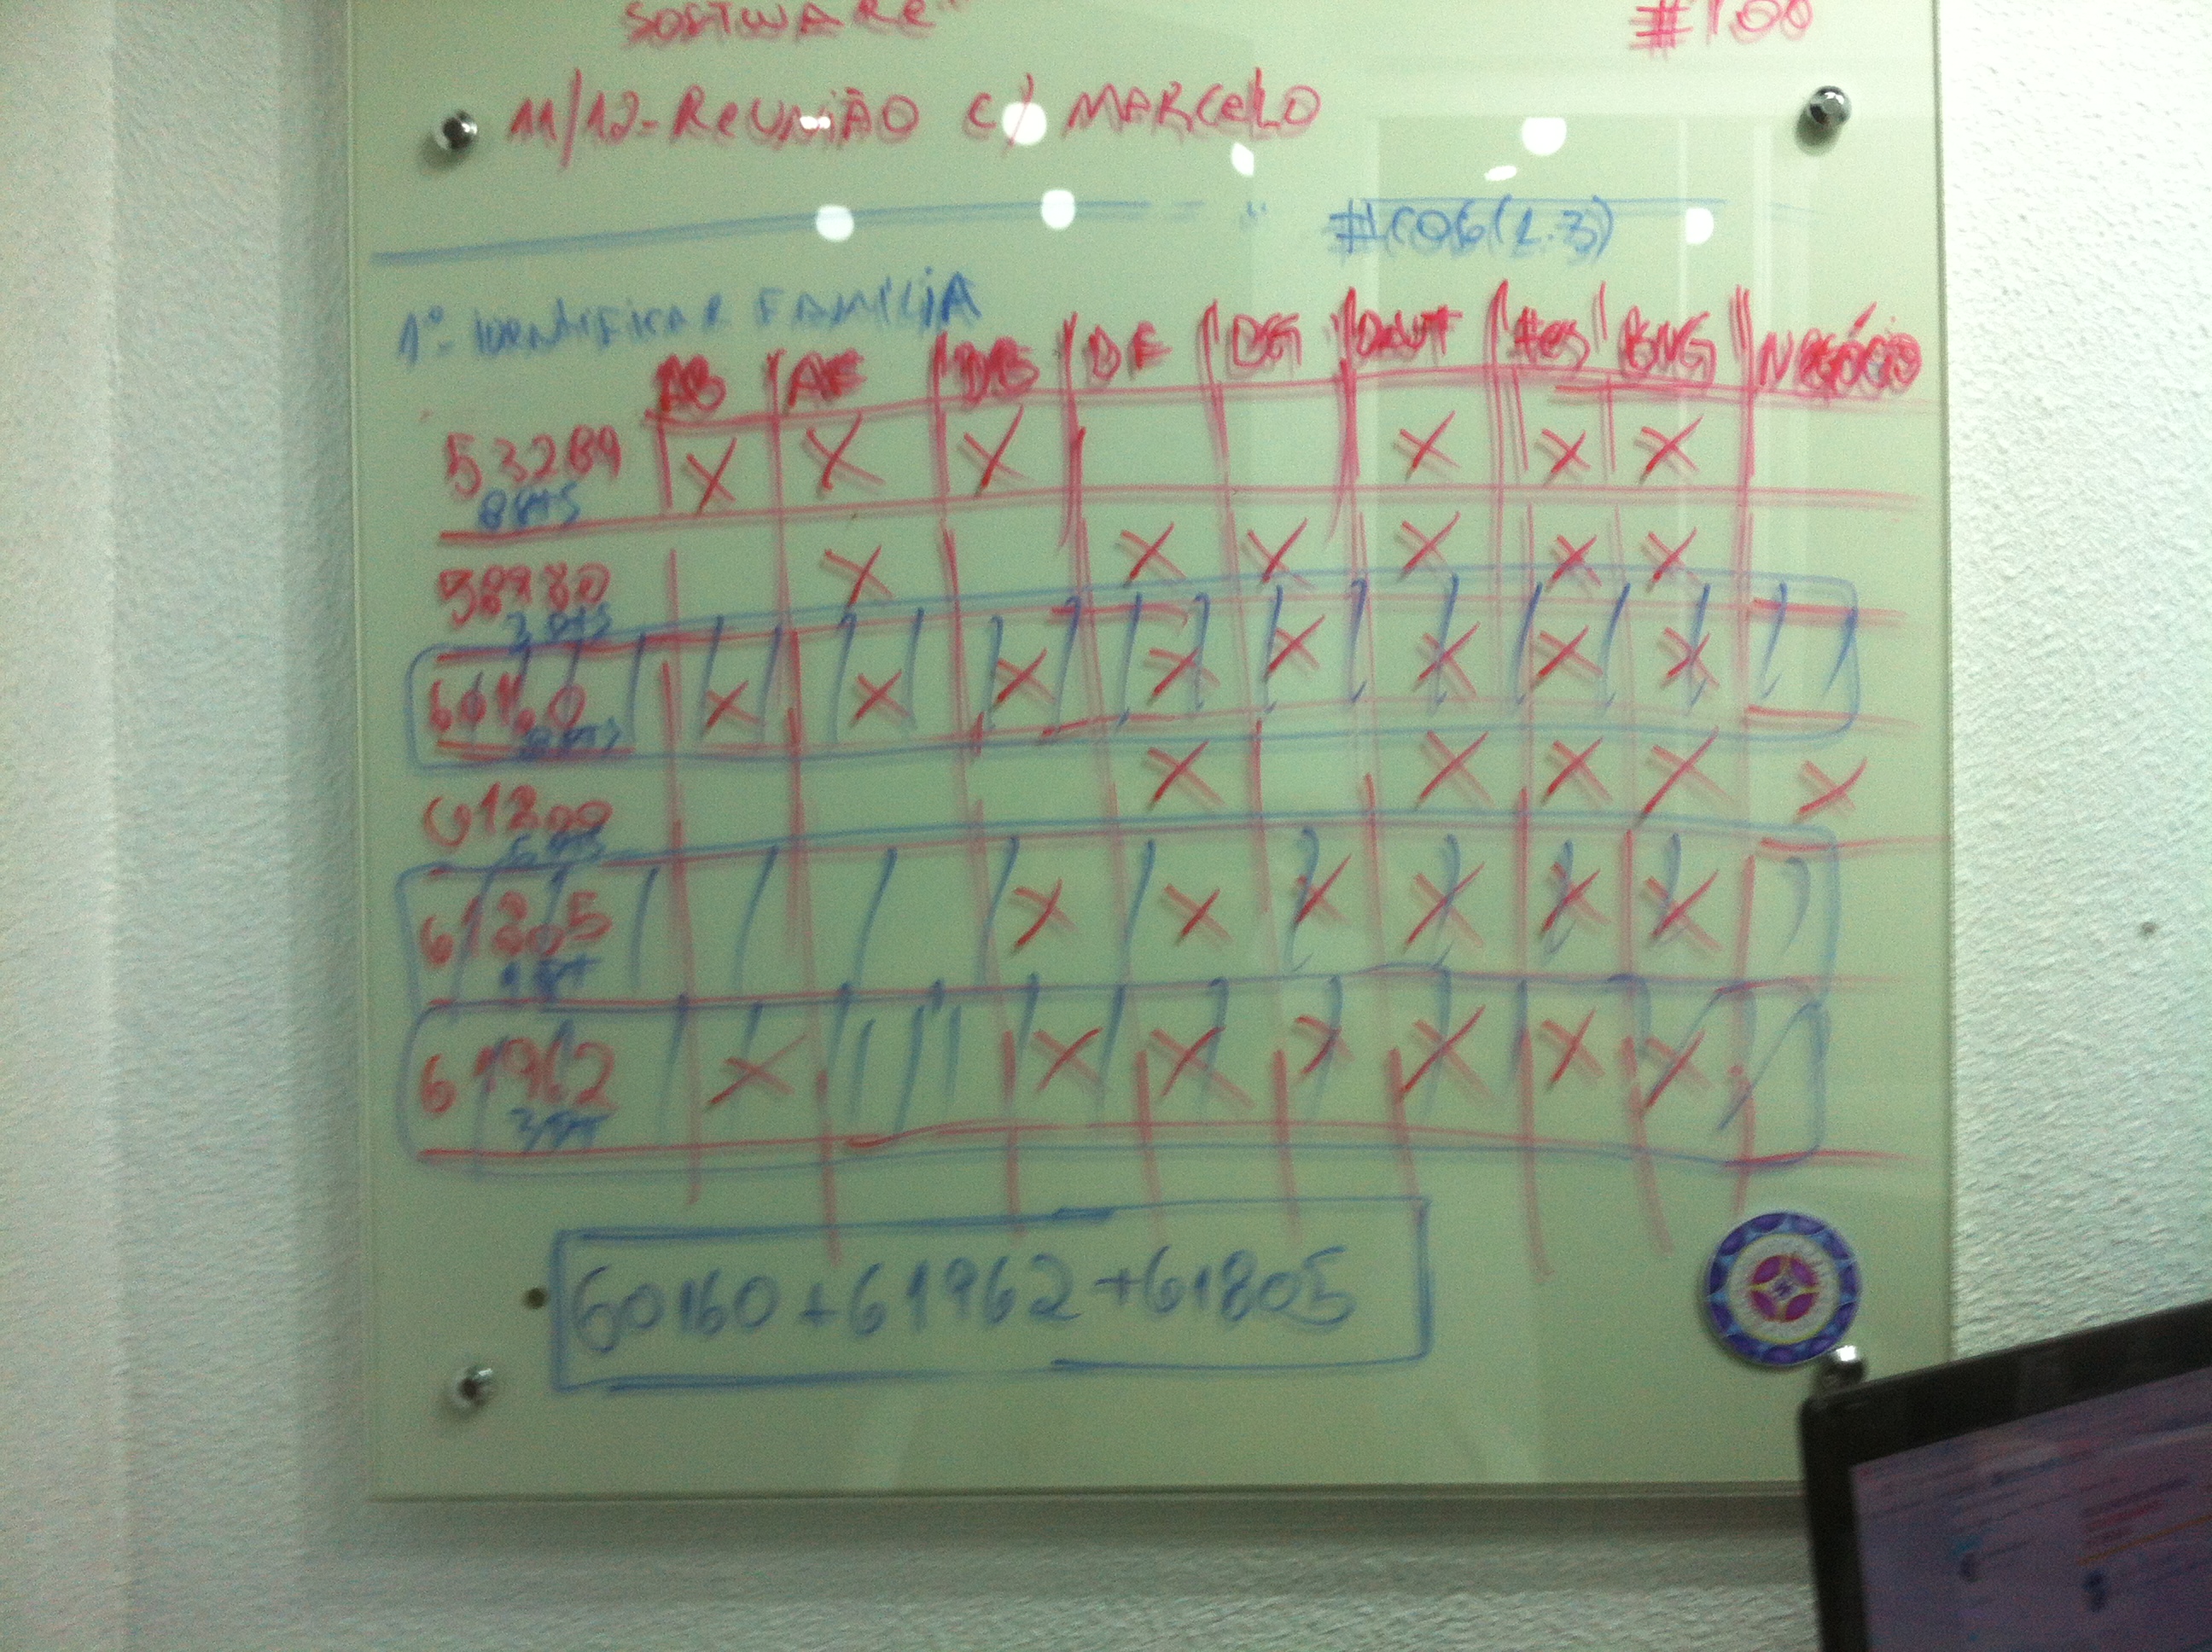 SOFTWARE"
#100
11/12-REUNIÃO C/ MARCELO
1º- IDENTIFICAR FAMÍLIA
AB AE DB DE DG DOUT NEGÓCIO
53289 X X X X X X
X X X X X X
60160 X X X X X X X X
X X X X X
61805 X X X X X X
61962 X X X X X X X
60160+61962+61805